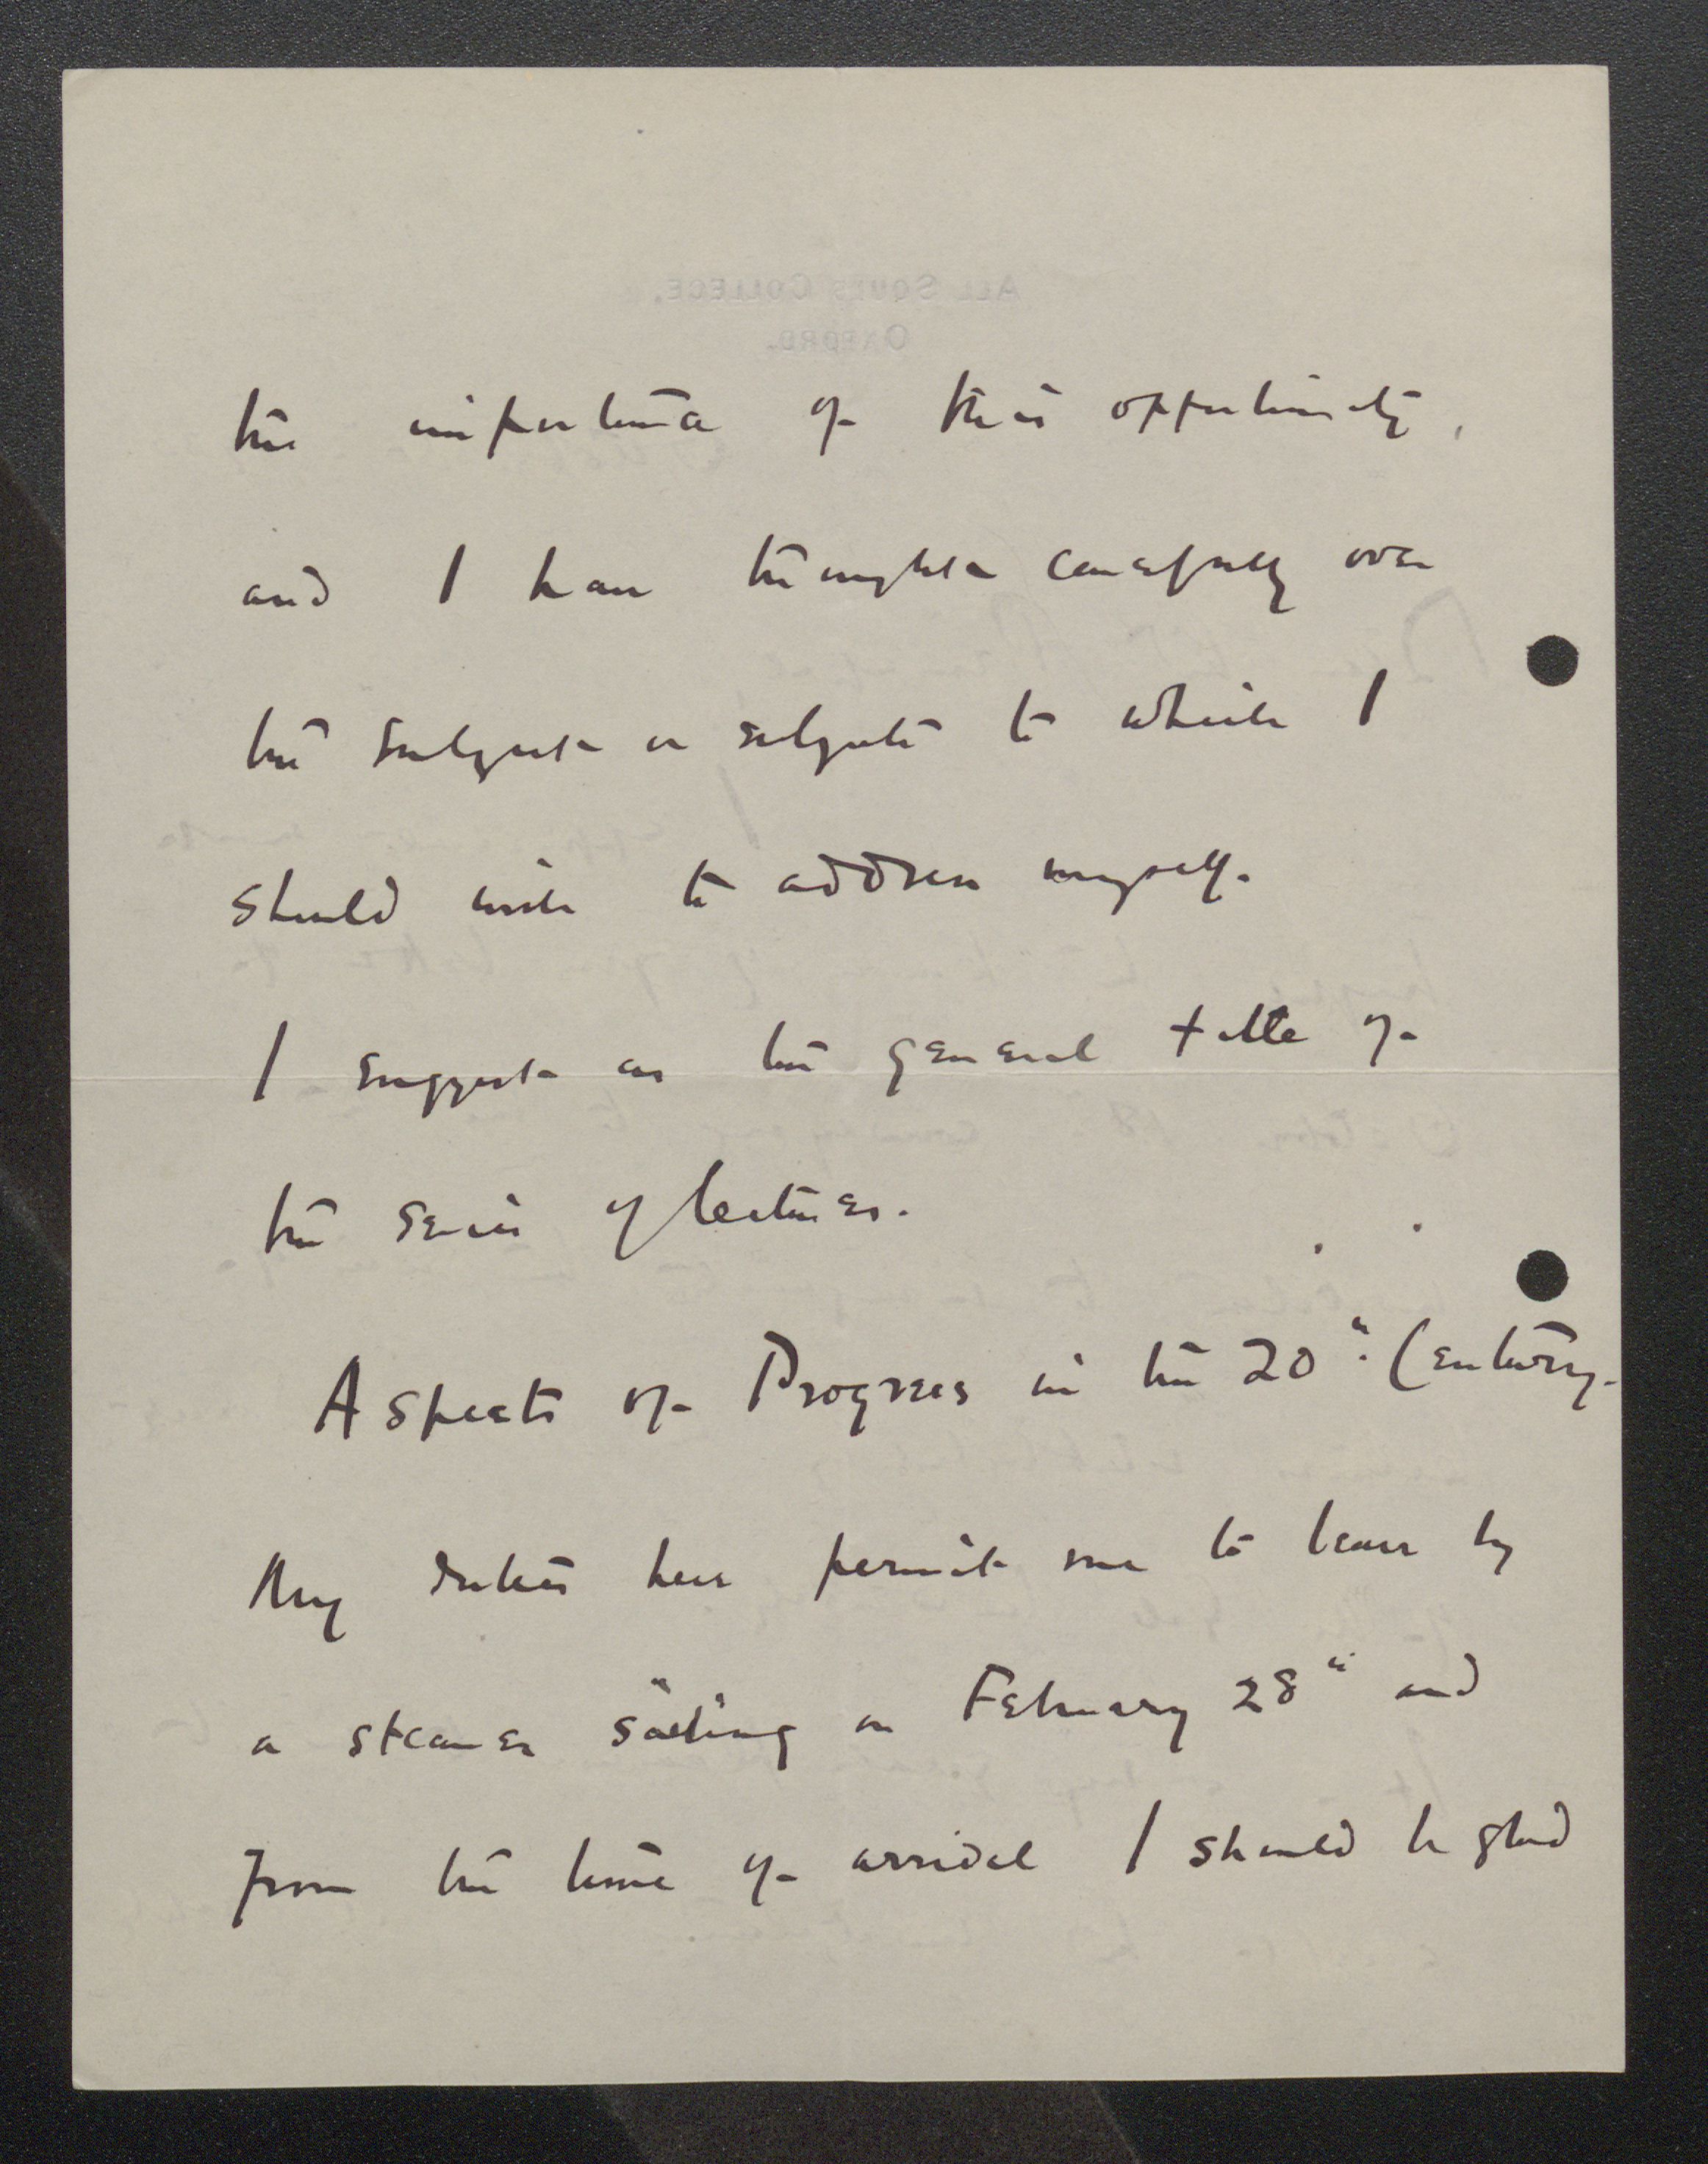 the importance of this opportunity,
and I have thought carefully over
the subject or subjects to which I
should wish to address myself.
I suggest as the general title of
the series of lectures.
Aspects of Progress in the 20th Century.
My duties here permit me to leave by
a steamer sailing on February 28th and
from the time of arrival I should be glad